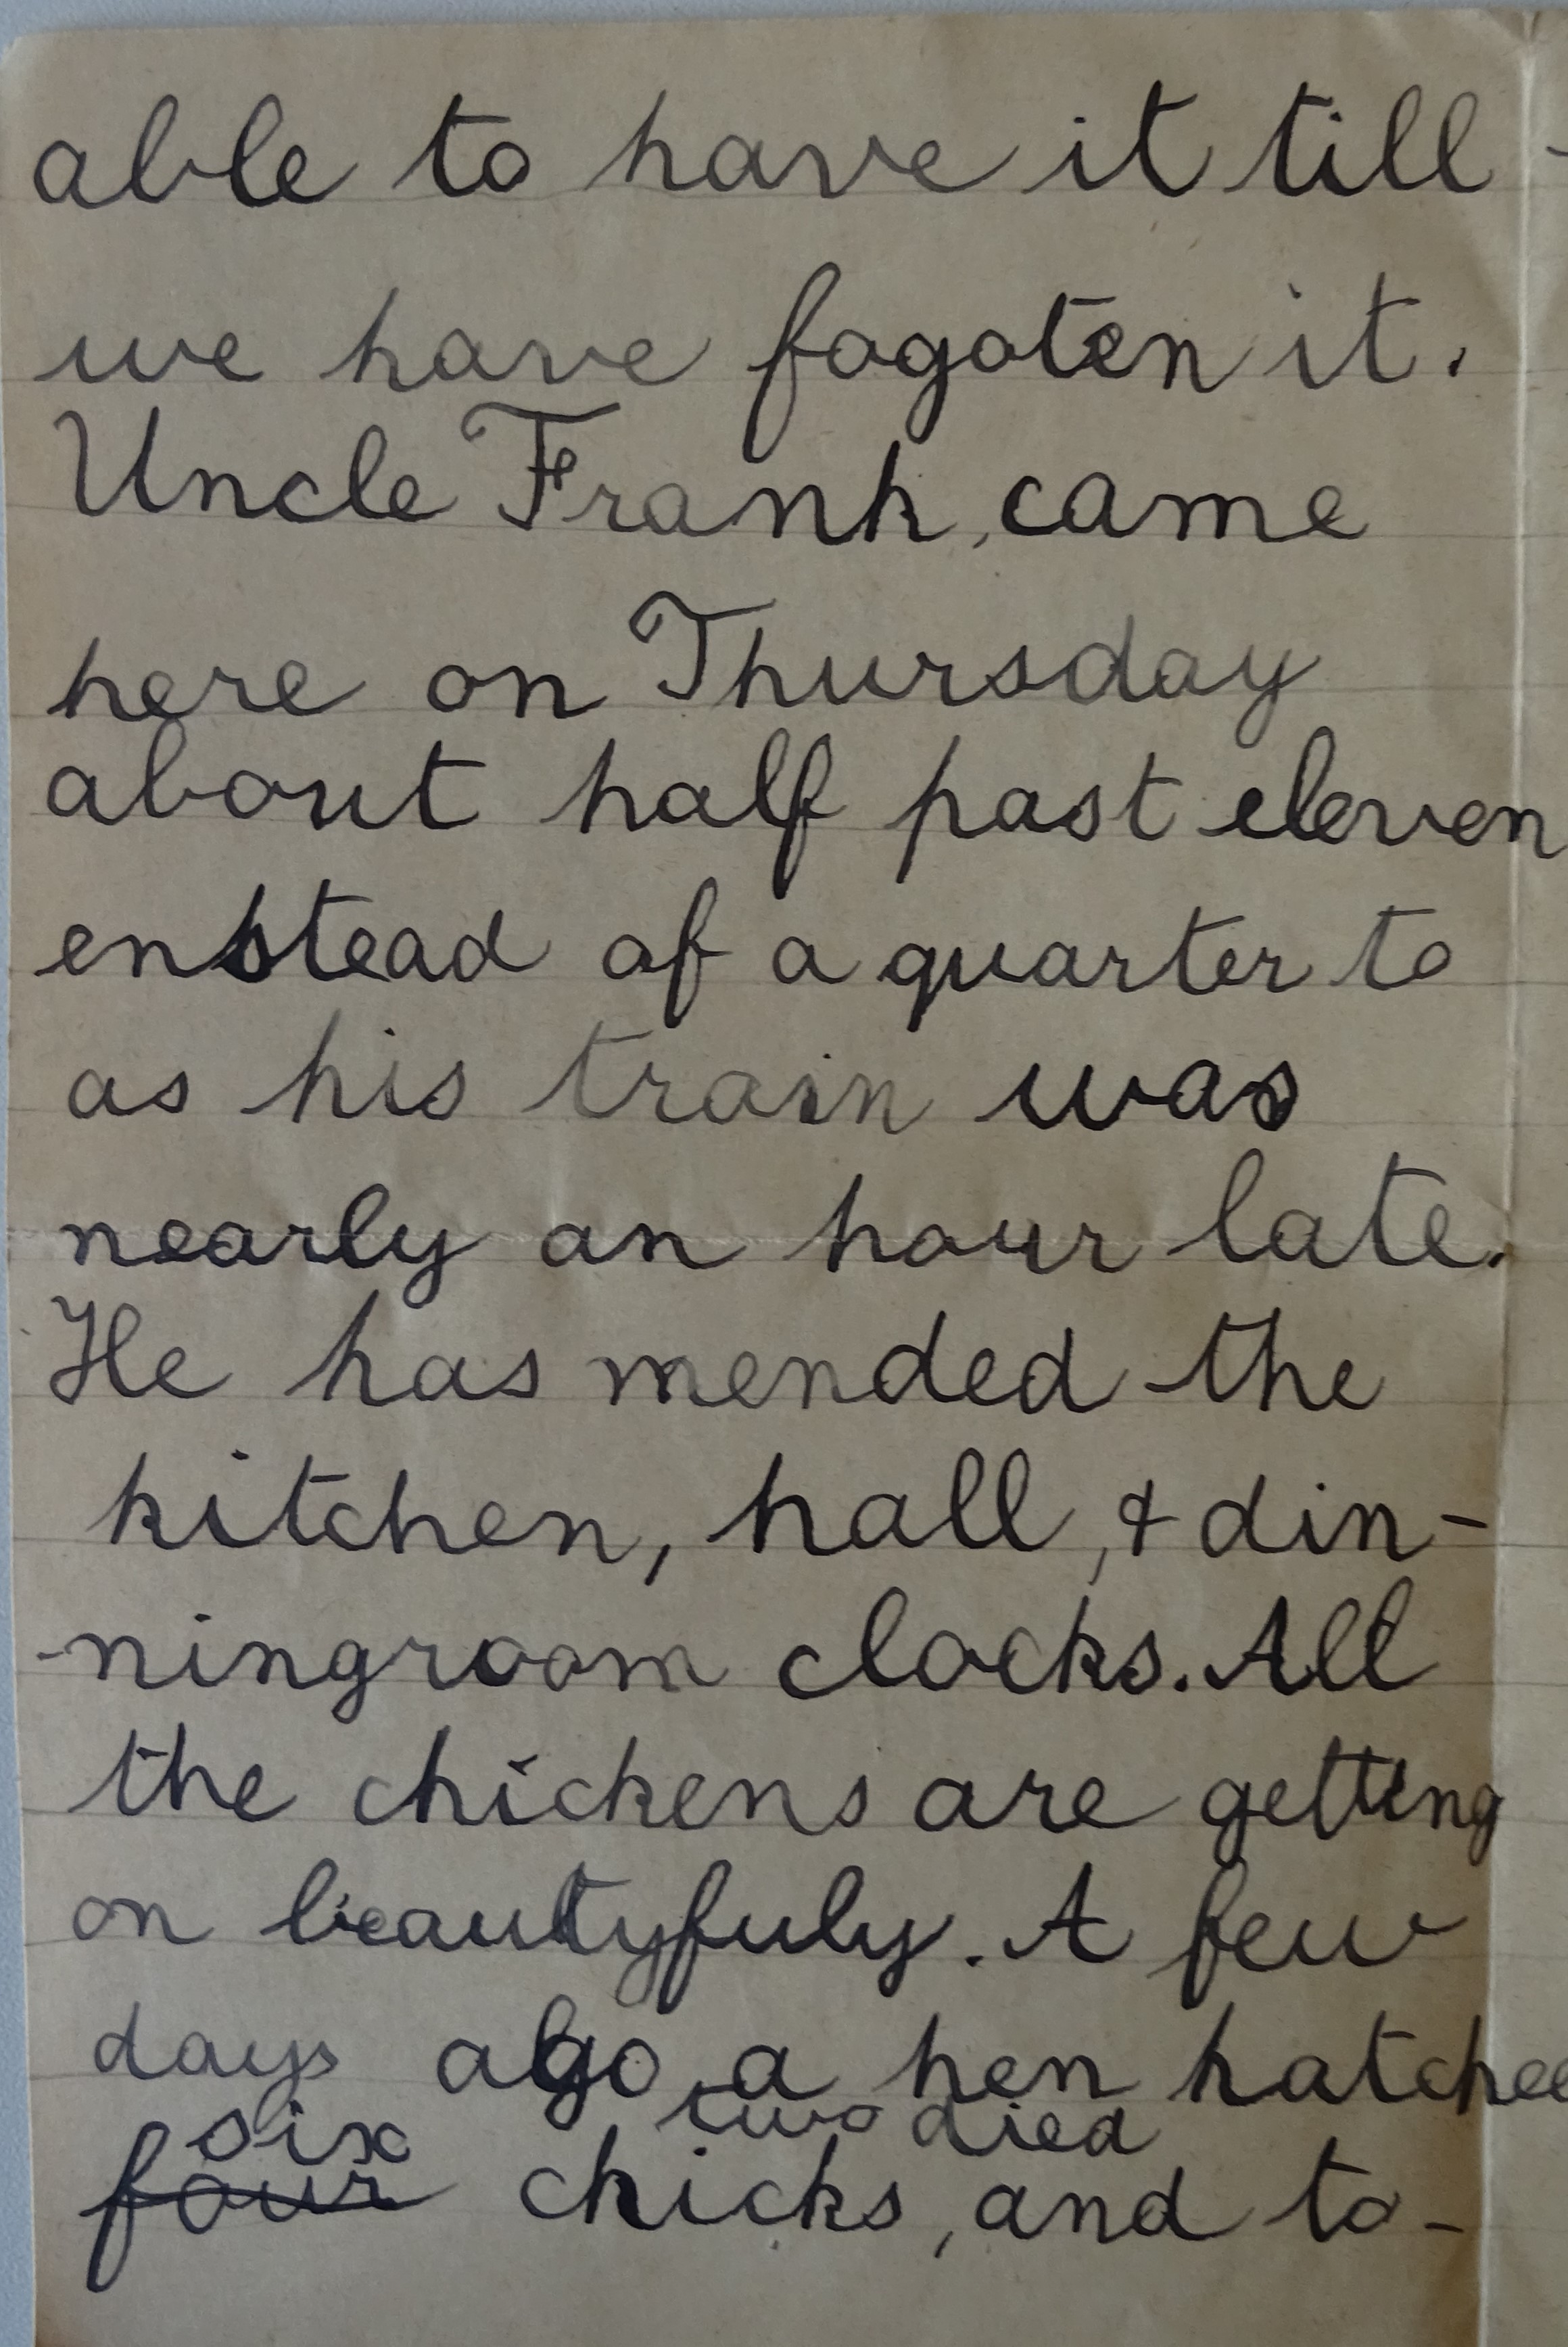 able to have it till
we have fogoten it.
Uncle Frank, came
here on Thursday
about half past eleven
enstead of a quarter to
as his train was
nearly an hour late.
He has mended the
kitchen, hall, & din-
-ningroom clocks. All
the chickens are getting
on beautyfuly. A few
days ago a hen hatched
six two died
four chicks, and to-